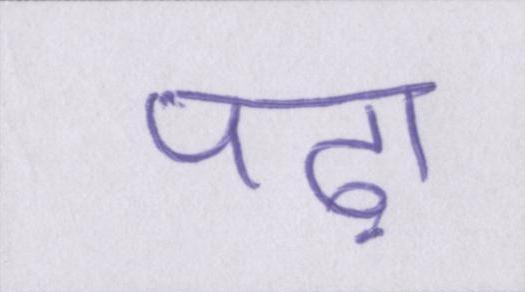 पढ़ा